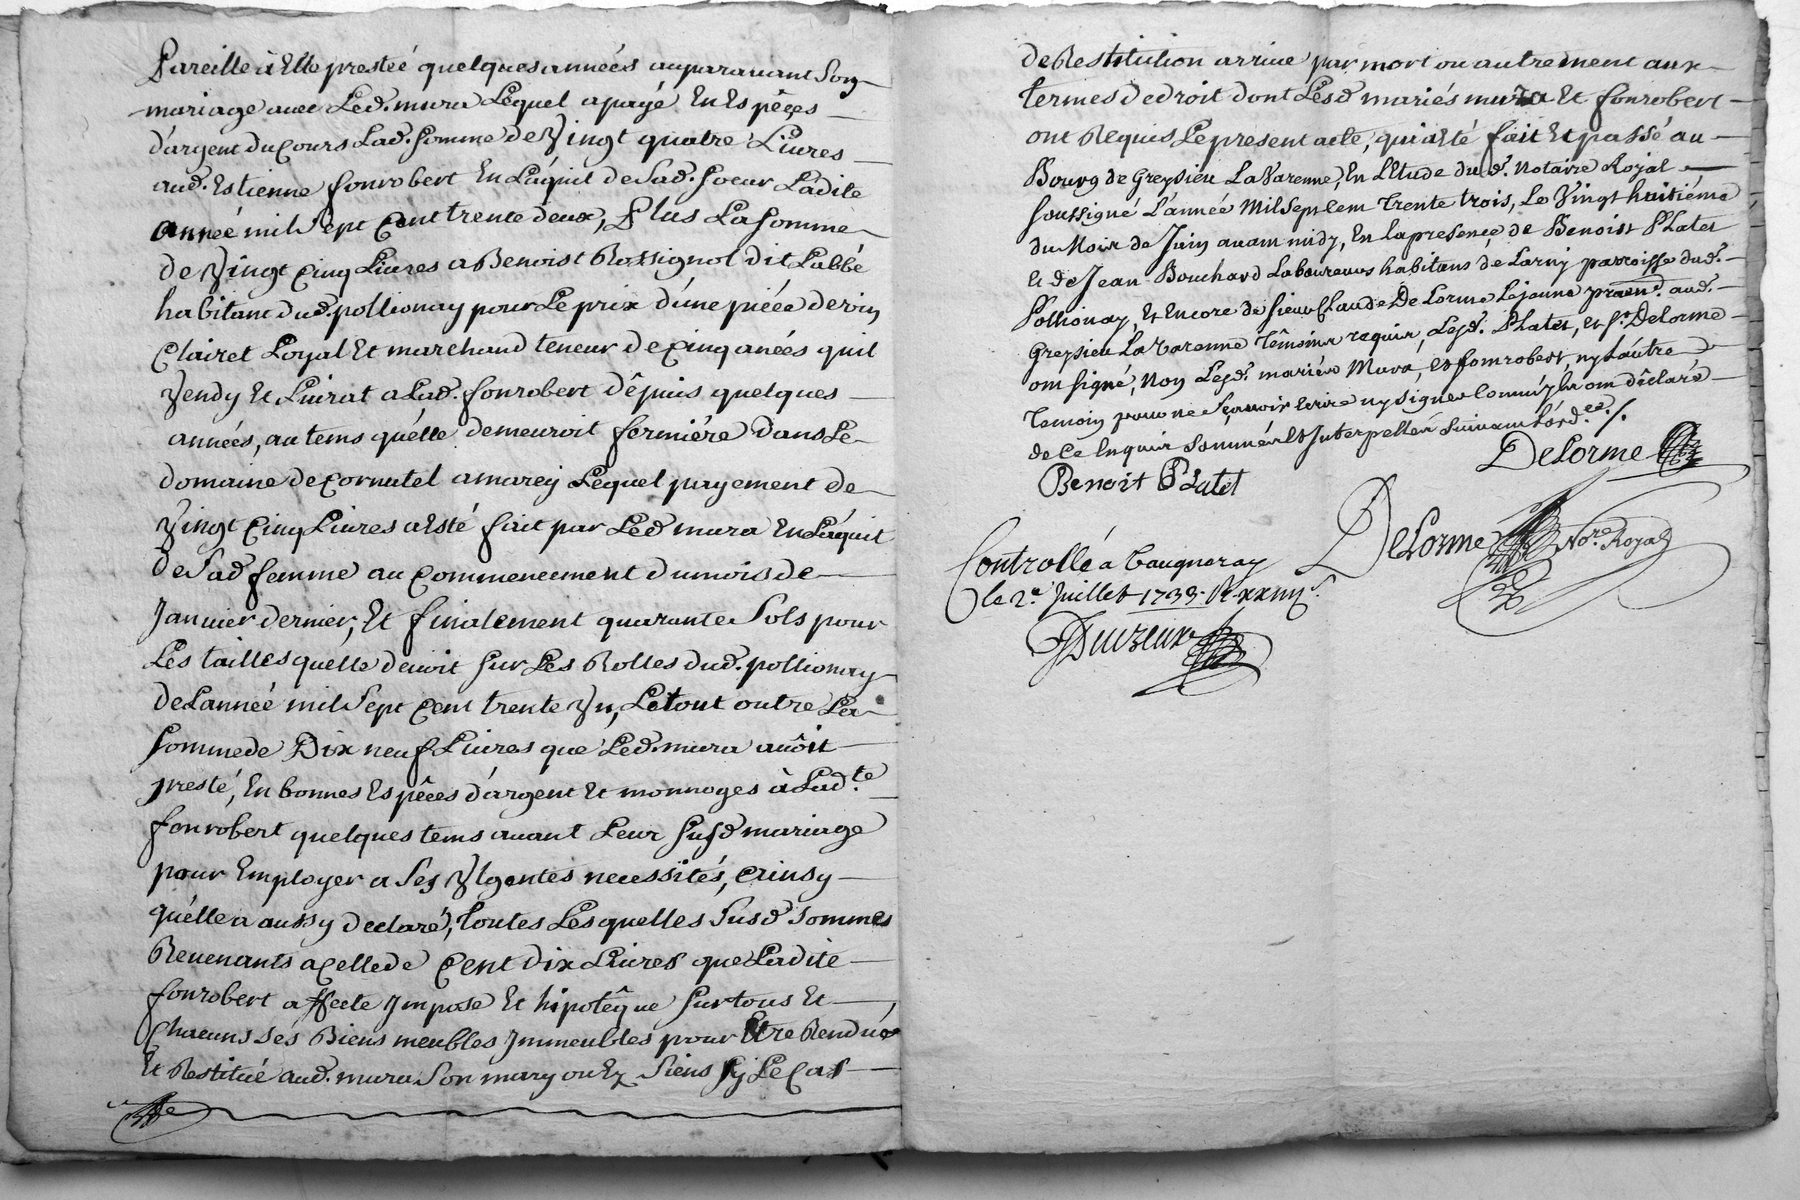 Pareille à Elle prestée quelques années auparauant Son
mariage auec Led. mura Lequel a payé En Espéçes
d'argent du Cours Lad. Somme de Vingt quatre Liures
aud. Estienne fonrobert En L'áquit de Sad. Soeur Ladite
année mil Sept Cent trente deux, Plus La Somme
de Vingt Cinq Liures a Benoist Rossignol dit Labbé
habitant dud. pollionay pour Le prix d'une piéce de vin
Clairet Loyal Et marchand teneur de Cinq anées quil
Vendy Et Liurat a Lad. fonrobert dépuis quelques
années, au tems qu'élle demeuroit fermiére dans Le
domaine de Cornatel a marcy Lequel payement de
Vingt Cinq Liures a Esté fait par Led mura En L'áquit
de Sad femme au Commencement du mois de
Januier dernier, Et finalement quarante Sols pour
Les tailles quelle deuoit Sur Les Rolles dud. pollionay
de Lannée mil Sept Cent trente Vn, Le tout outre La
Somme de Dix neuf Liures que Led. mura auôit
presté, En bonnes Espéces d'argent Et monnoyes à Lad.te
fonrobert quelques tems auant Leur Susd mariage
pour Employer a Ses Vrgentes necessités, Ainsy
qu'élle a aussy declaré, toutes Lesquelles Susd Sommes
Reuenants a Celle de Cent dix Liures que Ladite
fonrobert affecte Impose Et hipotêque Sur tous Et
Chacuns Ses Biens meubles Immeubles pour Etre Rendúe
Et Restitué aud. mura Son mary ou Ez Siens Sy Le Cas
de Restitution arriue par mort ou autrement aux
termes de droit dont Lesd mariés mura Et fonrobert
ont Requis Le present acte, qui a Eté fait Et passé au
Bourg de Greysieu La Varenne, En L'Etude dud. Notaire Royal
Soussigné L'année Mil Sept Cent Trente trois, Le Vingt huitiéme
du Mois de Juin auant midy, En la presençe de Benoist Platet
Et de Jean Bouchard Laboureurs habitans de Larny parroisse dud.
Pollionay, Et Encore de Sieur Claude De Lorme Lejeune praen. aud.
Greysieu La Varenne Témoins requis, Lesd. Platet, et Sr. Delorme
ont Signé, Non Lesd. mariés Mura, et fonrobert, ny L'áutre
Temoin pour ne Sçauoir Ecrire ny Signer
de Ce Enquis Sommés Et Interpellés Suiuant L'órd.ce ./.
Delorme
Benoit Platet
Delorme No.re Royal
Controllé a Vaugneray
le 2.e Juillet 1733. R. xxiiij s.